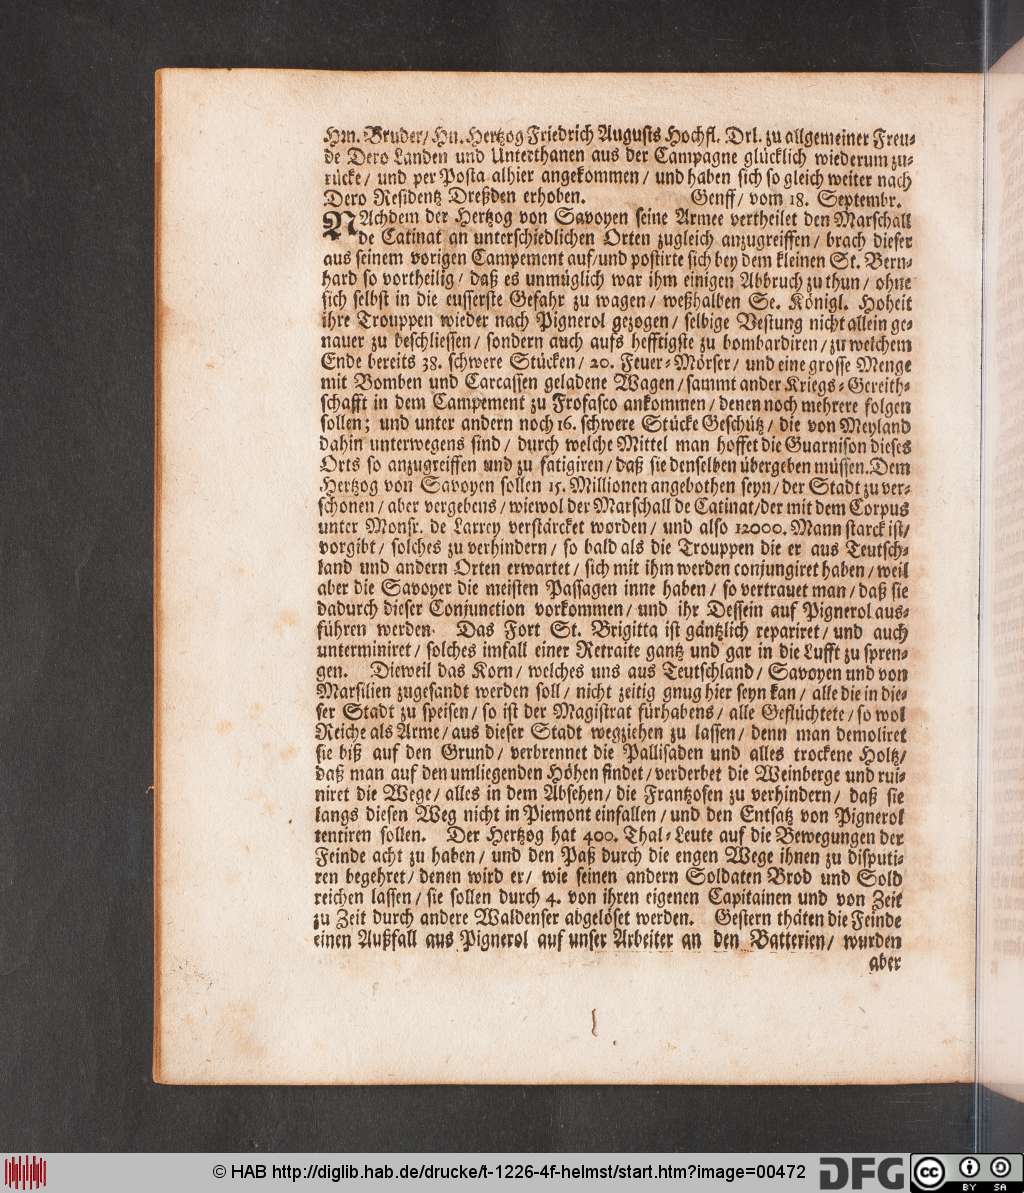 Hrn. Bruder/ Hn. Hertzog Friedrich Augusts Hochfl. Drl. zu allgemeiner Freu⸗
de Dero Landen und Unterthanen aus der Campagne glücklich wiederum zu⸗
rücke/ und per Posta alhier angekommen/ und haben sich so gleich weiter nach
Dero Residentz Dreßden erhoben. Genff/ vom 18. Septembr.
NAchdem der Hertzog von Savoyen seine Armee vertheilet den Marschall
de Catinat an unterschiedlichen Orten zugleich anzugreiffen/ brach dieser
aus seinem vorigen Campement auf/und postirte sich bey dem kleinen St. Bern⸗
hard so vortheilig/ daß es unmüglich war ihm einigen Abbruch zu thun/ ohne
sich selbst in die eusserste Gefahr zu wagen/ weßhalben Se. Königl. Hoheit
ihre Trouppen wieder nach Pignerol gezogen/ selbige Vestung nicht allein ge⸗
nauer zu beschliessen/ sondern auch aufs hefftigste zu bombardiren/ zu welchem
Ende bereits 38. schwere Stücken/ 20. Feuer⸗Mörser/ und eine grosse Menge
mit Bomben und Carcassen geladene Wagen/ sammt ander Kriegs⸗Gereith⸗
schafft in dem Campement zu Frofasco ankommen/ denen noch mehrere folgen
sollen; und unter andern noch 16. schwere Stücke Geschütz/ die von Meyland
dahin unterwegens sind/ durch welche Mittel man hoffet die Guarnison dieses
Orts so anzugreiffen und zu fatigiren/ daß sie denselben übergeben müssen. Dem
Hertzog von Savoyen sollen 15. Millionen angebothen seyn/ der Stadt zu ver⸗
schonen/ aber vergebens/ wiewol der Marschall de Catinat/der mit dem Corpus
unter Monsr. de Larrey verstärcket worden/ und also 12000. Mann starck ist/
vorgibt/ solches zu verhindern/ so bald als die Trouppen die er aus Teutsch⸗
land und andern Orten erwartet/ sich mit ihm werden conjungiret haben/ weil
aber die Savoyer die meisten Passagen inne haben/ so vertrauet man/ daß sie
dadurch dieser Conjunction vorkommen/ und ihr Dessein auf Pignerol aus⸗
führen werden. Das Fort St. Brigitta ist gäntzlich repariret/ und auch
unterminiret/ solches imfall einer Retraite gantz und gar in die Lufft zu spren⸗
gen. Dieweil das Korn/ welches uns aus Teutschland/ Savoyen und von
Marsilien zugesandt werden soll/ nicht zeitig gnug hier seyn kan/ alle die in die⸗
ser Stadt zu speisen/ so ist der Magistrat fürhabens/ alle Geflüchtete/ so wol
Reiche als Arme/ aus dieser Stadt wegziehen zu lassen/ denn man demoliret
sie biß auf den Grund/ verbrennet die Pallisaden und alles trockene Holtz/
daß man auf den umliegenden Höhen findet/ verderbet die Weinberge und rui⸗
niret die Wege/ alles in dem Absehen/ die Frantzosen zu verhindern/ daß sie
langs diesen Weg nicht in Piemont einfallen/ und den Entsatz von Pignerol
tentiren sollen. Der Hertzog hat 400. Thal⸗Leute auf die Bewegungen der
Feinde acht zu haben/ und den Paß durch die engen Wege ihnen zu disputi⸗
ren begehret/ denen wird er/ wie seinen andern Soldaten Brod und Sold
reichen lassen/ sie sollen durch 4. von ihren eigenen Capitainen und von Zeit
zu Zeit durch andere Waldenser abgelöset werden. Gestern thäten die Feinde
einen Außfall aus Pignerol auf unser Arbeiter an den Batterien/ wurden
aber
© HAB http://diglib.hab.de/drucke/t-1226-4f-helmst/start.htm?image=00472
DFG
cc BY SA